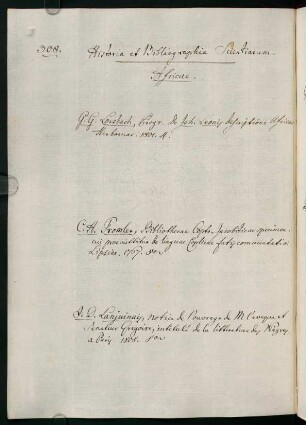 308.
Historia et Bibliographia Scientiarum
Africae.
G. G. Lorsbach, Progr. de Joh. Leonis descriptione Africae
Herbornae. 1801. 4.
C. H. Tromler, Bibliothecae Copto-Jacobiticae specimen
cui praemittitur de linguae Copticae fatis commentatio
Lipsiae. 1767. 8vo
J. D. Lanjuinais, notice de l'ouvrage de M. l'eveque et
Senateur Gregoire, intitulé: de la litterature des Nègres
a Paris 1808. 8vo